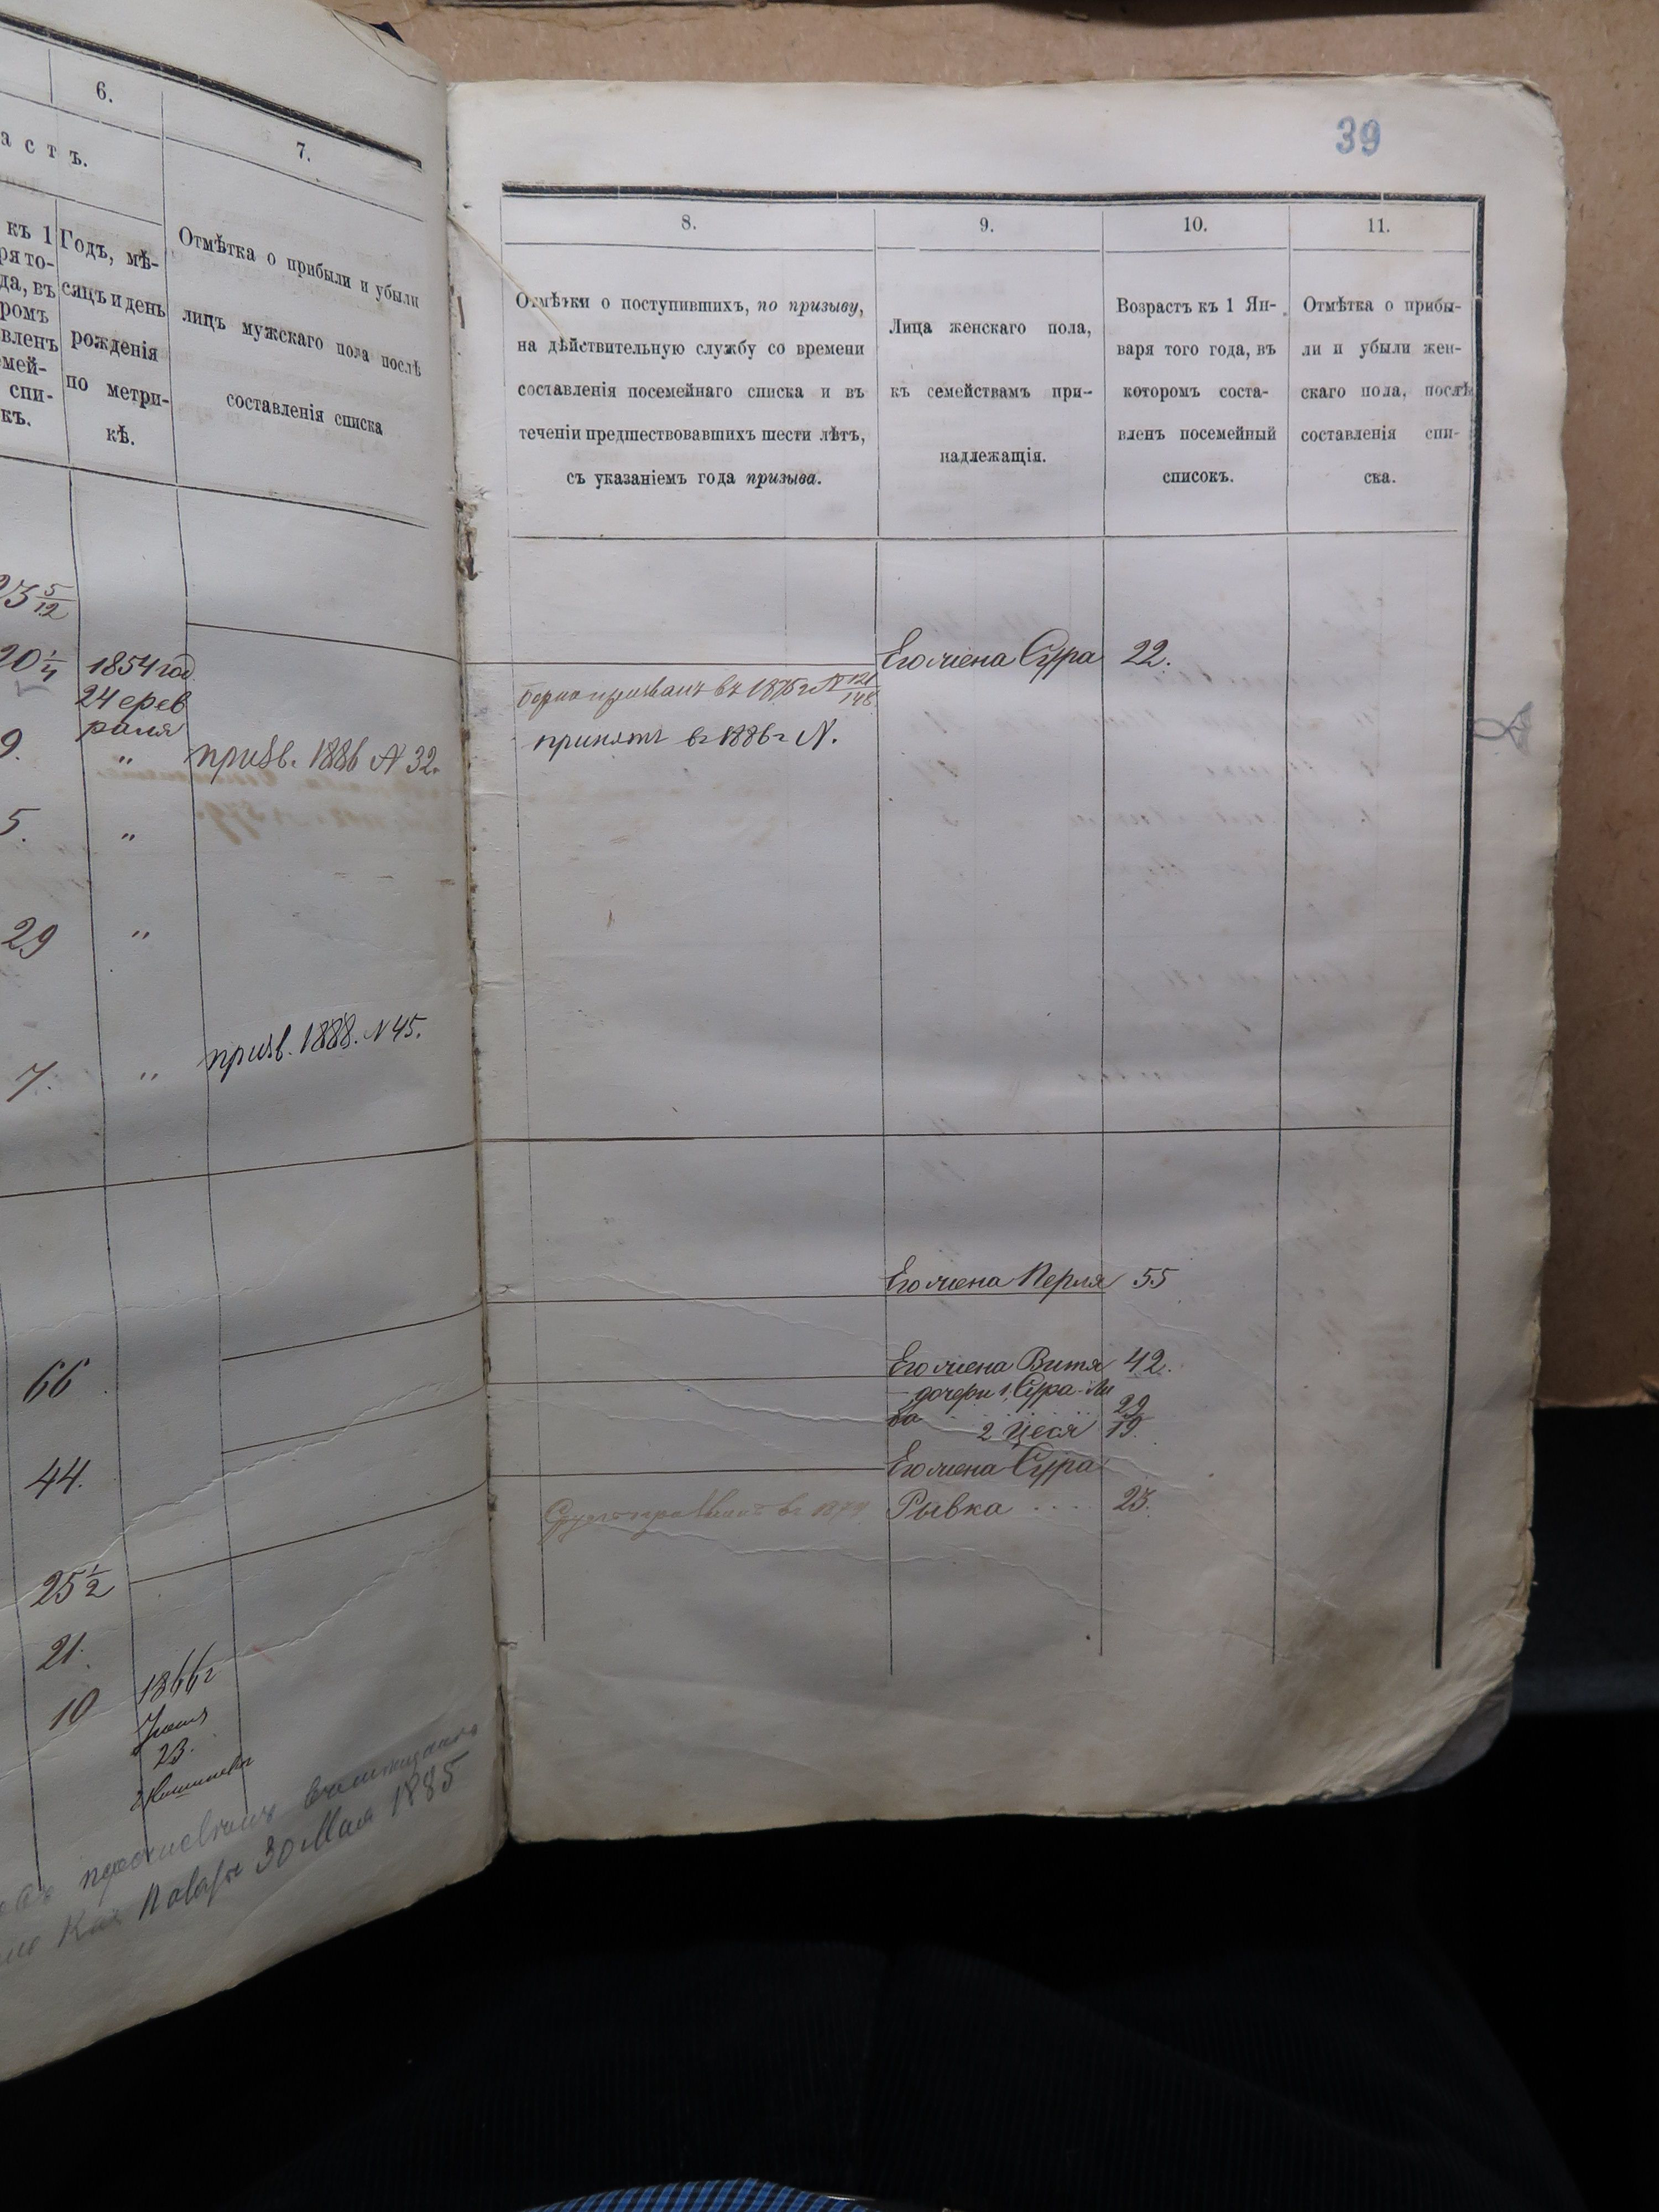 6.
7.
астъ.
къ 1
ря то-
да, въ
ромъ
вленъ
мей-
спи-
къ.
Годъ, мѣ-
сяцъ и день
рожденія
по метри-
кѣ.
Отмѣтка о прибыли и убыли
лицъ мужскаго пола послѣ
составленія списка
23 5/12
20 1/4
1854 год
24 фев
раля
9.
"
призв. 1886 № 32.
5.
"
29
"
7.
"
призв. 1888. № 45.
66
44.
25 1/2
21.
10
1866 г
23.
30 Мая 1885
39
8.
9.
10.
11.
Отмѣтки о поступившихъ, по призыву,
на дѣйствительную службу со времени
составленія посемейнаго списка и въ
теченіи предшествовавшихъ шести лѣтъ,
съ указаніемъ года призыва.
Лица женскаго пола,
къ семействамъ при-
надлежащія.
Возрастъ къ 1 Ян-
варя того года, въ
которомъ соста-
вленъ посемейный
списокъ.
Отмѣтка о прибы-
ли и убыли жен-
скаго пола, послѣ
составленія спи-
ска.
Его жена Сура 22.
призванъ въ 1875 г № 121/148
принятъ въ 1886 г №.
Его жена Перля 55
Его жена Витя 42.
дочери 1, Сура-Ли
ба 29
2 Цеся 19.
Его жена Сура
Рывка .... 23.
въ 1874